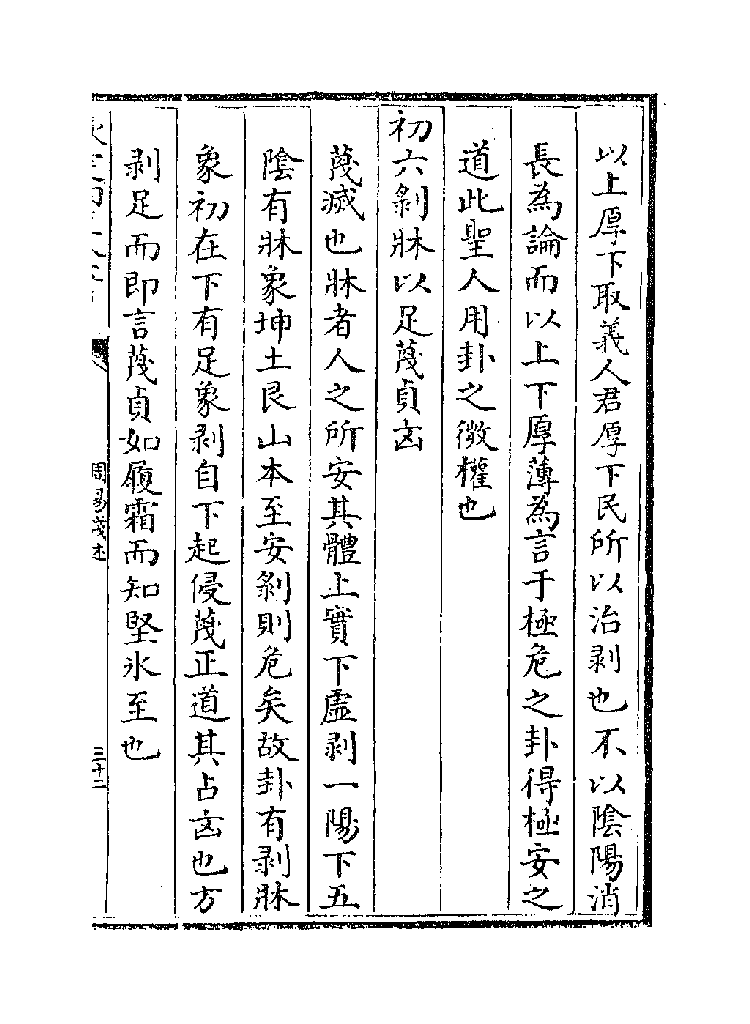 以上厚下取義人君厚下民所以治剥也不以陰陽消
長為論而以上下厚薄為言于極危之卦得極安之
道此聖人用卦之微權也
初六剝牀以足蔑貞㐫
蔑滅也牀者人之所安其體上實下虛剥一陽下五
陰有牀象坤土艮山本至安剝則危矣故卦有剥牀
象初在下有足象剥自下起侵蔑正道其占㐫也方
剥足而即言蔑貞如履霜而知堅氷至也
周易淺述
三十二